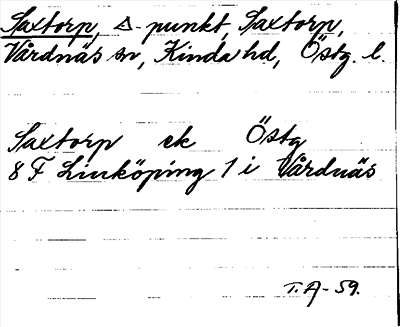 Saxtorp, △-punkt, Saxtorp,
Vårdnäs sn, Kinda hd, Östg. l.
Saxtorp ek Östg
8 F Linköping 1 i Vårdnäs
T.A-59.